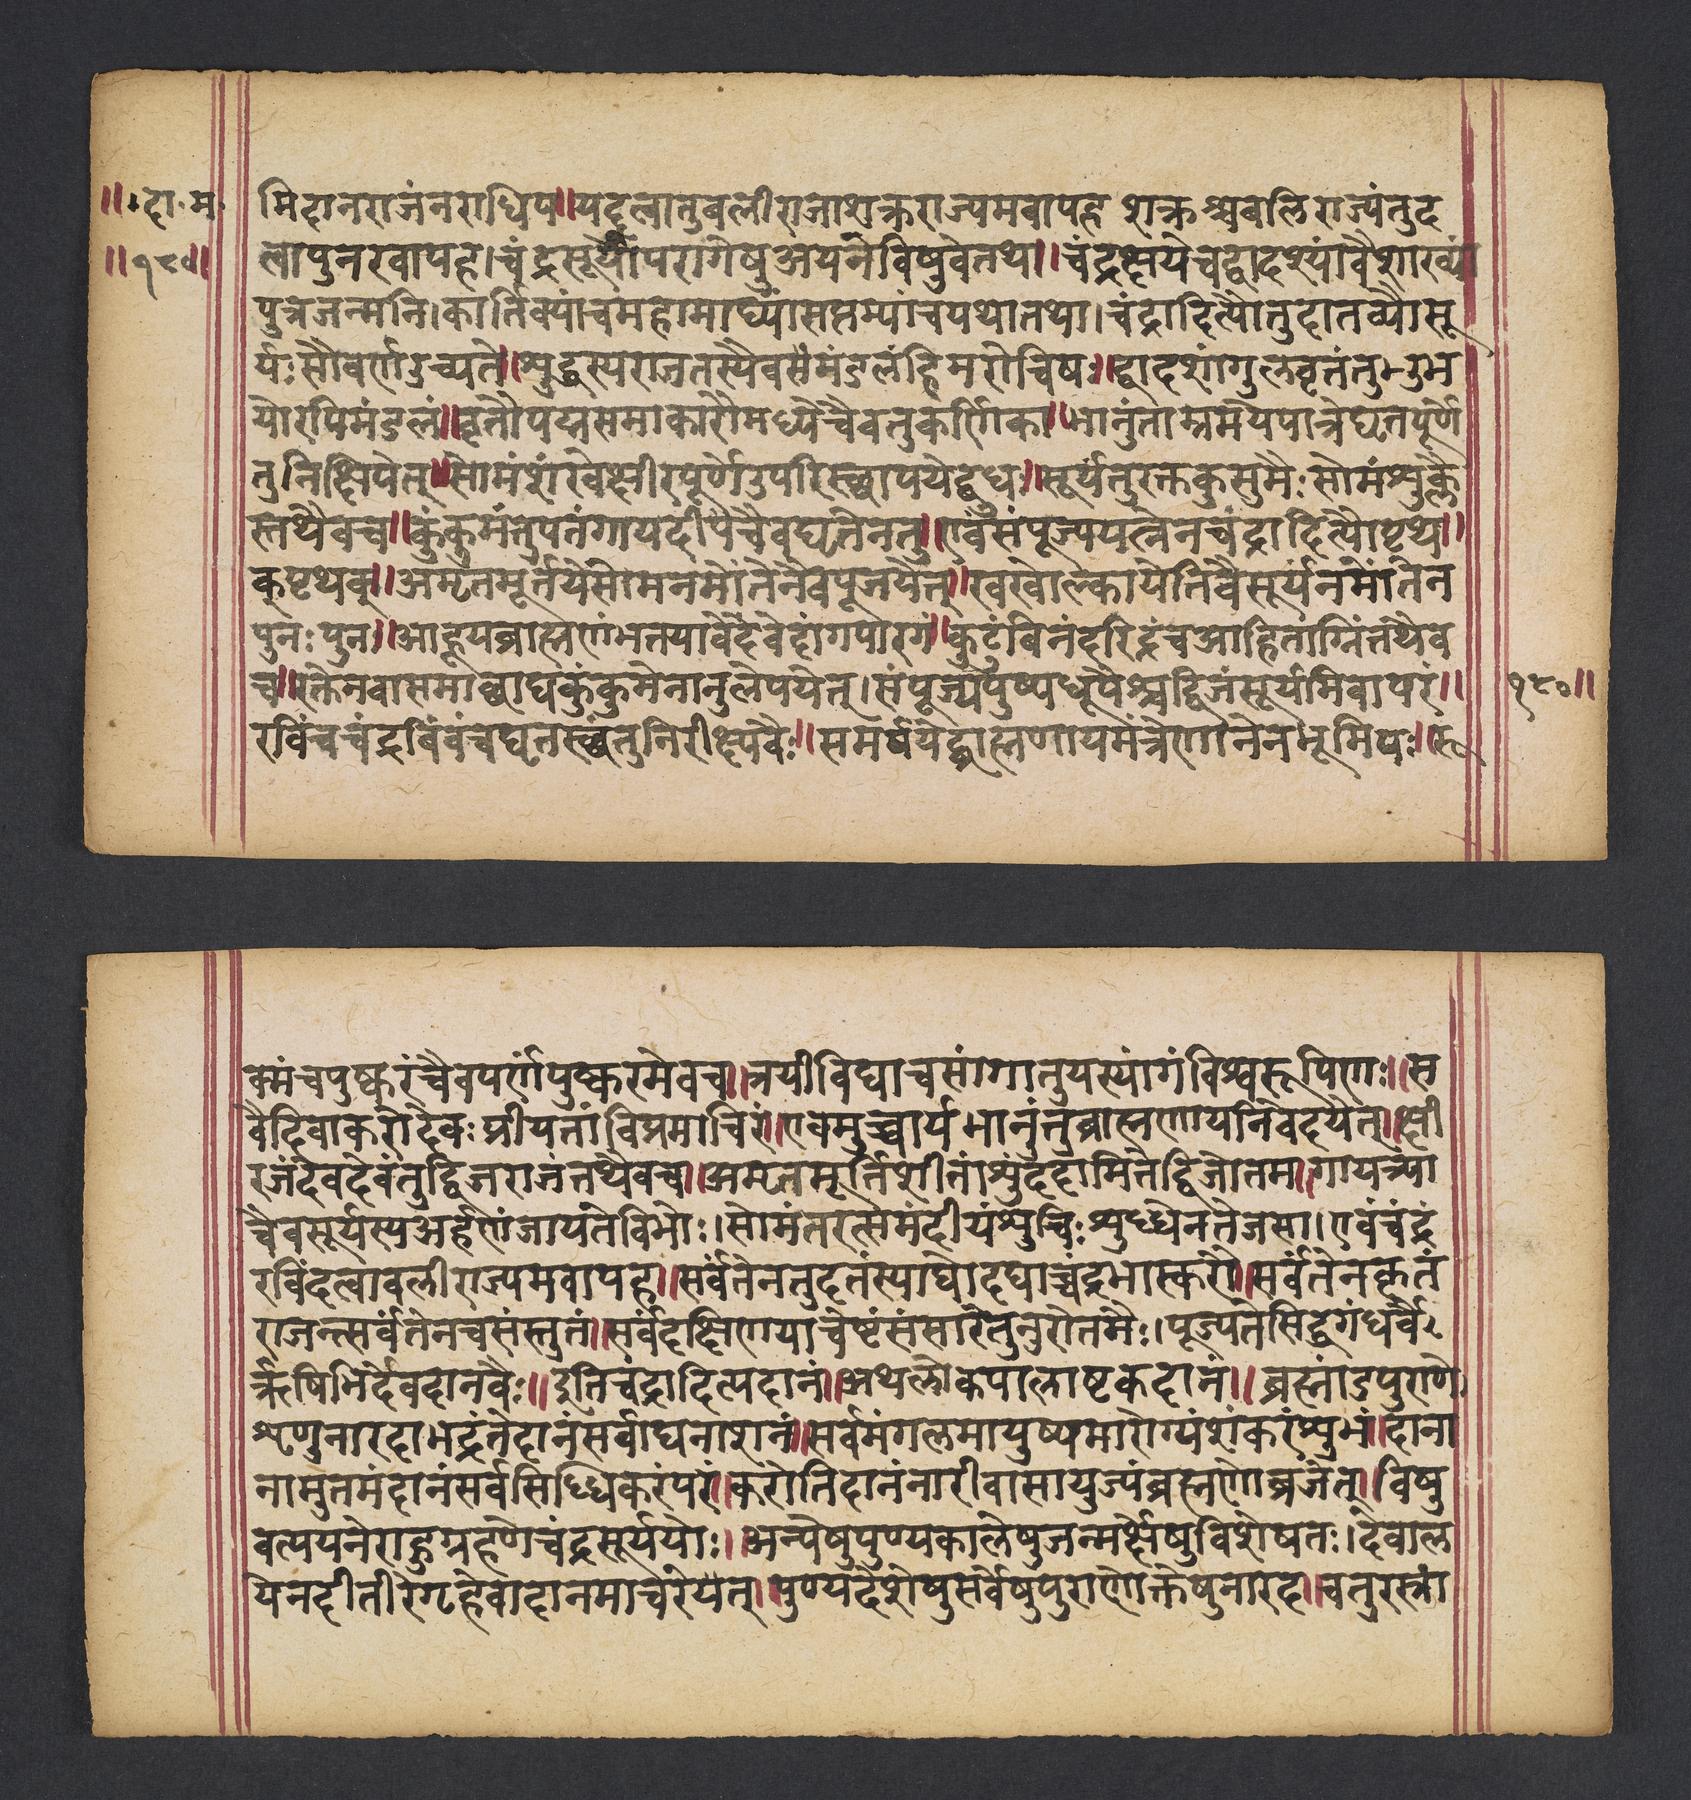 ॥दा॰म॰
॥१८०॥
मिदानराजंनराधिप॥यद्दत्वातुबलीराजाशक्रराज्यमवापह शक्रश्चबलिराज्यंतुद
त्वापुनरवापह।चंद्रसूर्योपरागेषुअयनेविषुवेतथा॥चंद्रक्षयेचद्वादश्यांवैशाख्यां
पुत्रजन्मनि।कार्तिक्यांचमहामाघ्यांसप्तम्यांचयथातथा।चंद्रादित्यौतुदातव्यौसू
र्यःसौवर्णउच्यते॥शुद्धस्यराजतस्यैवसंमंडलंहिमरोचिषः॥द्वादशांगुलवृतंतुउभ
योरपिमंडलं॥वृतौपद्मसमाकारौमध्येचैवतुकर्णिका॥भानुंताम्रमयेपात्रेघृतपूर्णे
तुनिक्षिपेत्॥सोमंशंखेक्षीरपूर्णेउपरिस्छापयेद्बुधः॥सूर्यंतुरक्तकुसुमैःसोमंशुक्लै
स्तथैवच॥कुंकुमंतुपतंगायदीपंचैवघृतेनतु॥एवंसंपूज्ययत्नेनचंद्रादित्यौपृथ॥
क्पृथक्॥अमृतमूर्तयेसोमनमोंतेनैवपूजयेत्॥खखोल्कायेतिवैसूर्यंनमोंतेन
पुनःपुनः॥आहूयब्राह्मणंभक्त्यावेदवेदांगपारगं॥कुटुंबिनंदरिद्रंचआहिताग्निंतथैव
च॥रक्तेनवाससाछाद्यकुंकुमेनानुलेपयेत्।संपूज्यपुष्पधूपैश्चद्विजंसूर्यमिवापरं॥
१८०॥
रविंचचंद्रबिंबंचघृतस्छंतुनिरीक्ष्यवैः॥समर्पयेद्ब्राह्मणायमंत्रेणानेनभूमिपः॥रु
क्मंचपुष्करंचैवपर्णंपुष्करमेवच॥त्रयीविद्याचसांगातुयस्यांगंविश्वरूपिणः॥स
वैदिवाकरोदेवःप्रीयतांविप्रमाचिरं॥एवमुच्चार्यभानुंतुब्राह्मणायनिवेदयेत्॥क्षी
रजंदेवदेवंतुद्विजराजंतथैवच॥अमृतमूर्तिंशीतांशुंददामितेद्विजोतम॥गायत्र्या
चैवसूर्यस्यअर्हणंजायतेविभोः।सोमंतरत्समंदीयंशुचिःशुध्धेनतेजसा।एवंचंद्रं
रविंदत्वाबलीराज्यमवापह॥सर्वंतेनतुदतंस्याद्योदद्याच्चंद्रभास्करौ॥सर्वंतेनकृतं
राजन्त्सर्वंतेनचसंस्तुतं॥सर्वंदक्षिणयाचेष्टंसंसारेतुनुरोतमैः।पूज्यतेसिद्धगंधर्वैर्
ऋषिभिर्देवदानवैः॥इतिचंद्रादित्यदानं॥अथलोकपालाष्टकदानं॥ब्रह्मांडपुराणे
शृणुनारदाभद्रंतेदानंसर्वाघनाशनं॥सर्वमंगलमायुष्यमारोग्यंशंकरंशुभं॥दाना
नामुतमंदानंसर्वसिध्धिकरंपरं॥करोतिदानंनारीवासायुज्यंब्रह्मणोब्रजेत्॥विषु
वत्ययनेराहुग्रहणेचंद्रसूर्ययोः॥अन्येषुपुण्यकालेषुजन्मर्क्षेषुविशेषतः।देवाल
येनदीतीरेगृहेवादानमाचरेयत्॥पुण्यदेशेषुसर्वेषुपुराणोक्तेषुनारद॥चतुरस्रां